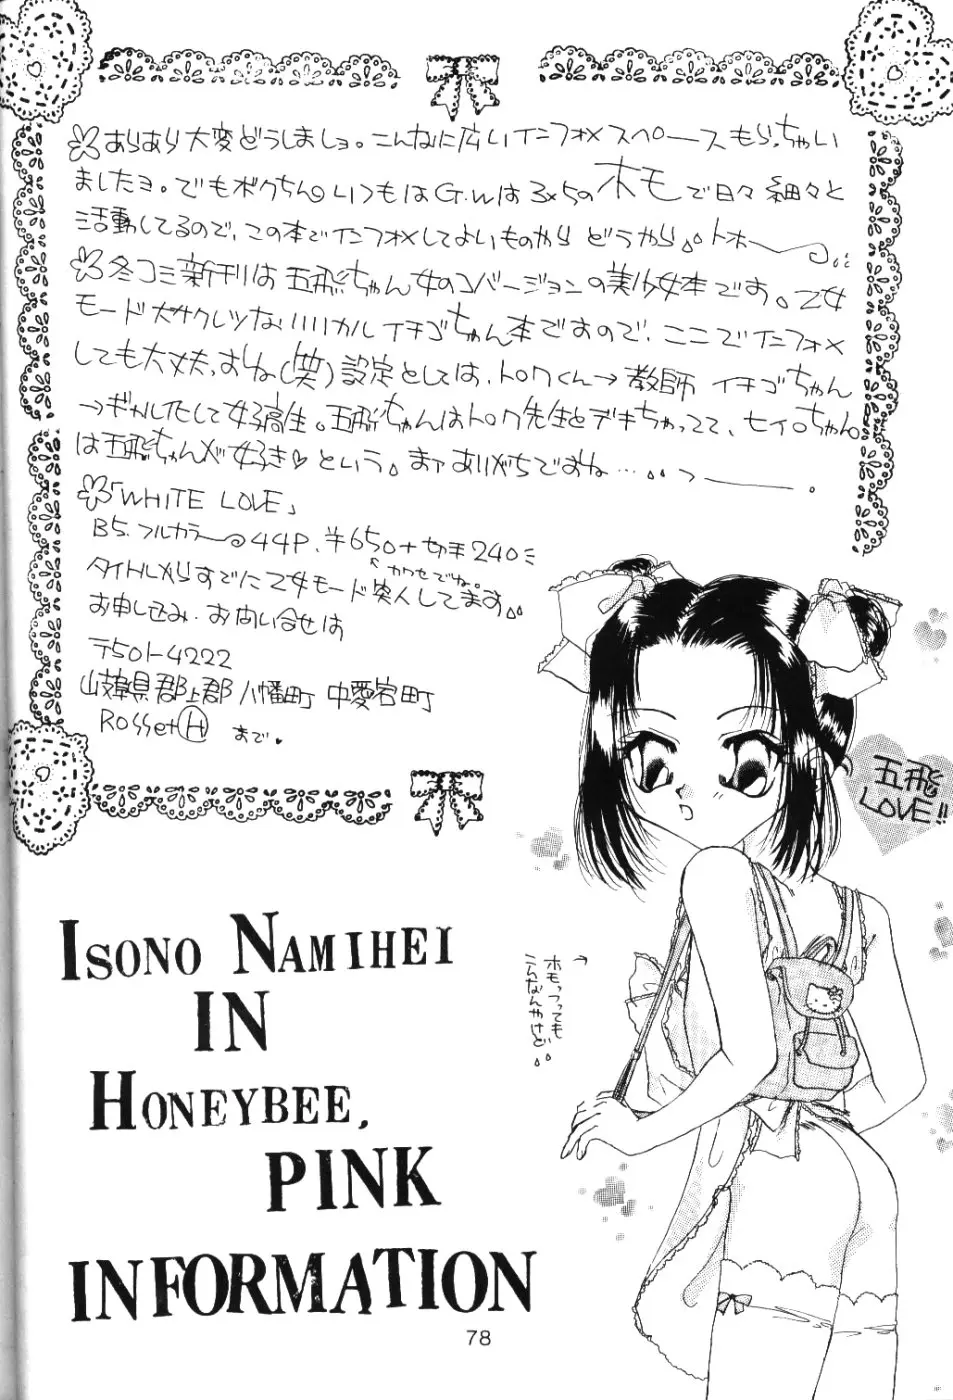 あらあら大変どうしましょ。こんなに広いインフォメスペースもらっちゃい
ましたョ。でもボクちん いつもはG.Wは3×5のホモで日々細々と
活動してるので、この本でインフォメしてよいものやら どうやら。トホー
冬コミ新刊は五飛ちゃん女のコバージョンの美少女本です。乙女
モード大サクレツな イチゴちゃん本ですので、ここでインフォメ
しても大丈夫、よね(笑)設定としては、トロワくん→教師 イチゴちゃん
→ギャル化して女子高生。五飛ちゃんはトロワ先生とデキちゃってて、セイロちゃん
は五飛ちゃんが好き♡という。まァありがちですよね…。
「WHITE LOVE」
B5. フルカラー 44P. ¥650+切手240
カワセでね。
タイトルからすでに乙女モード突入してます。
お申し込み・お問い合せは
〒501-4222
岐阜県郡上郡八幡町 中愛宕町
RosseH まで。
五飛
LOVE!!
ホモっつっても
こんなんやけど
ISONO NAMIHEI
IN
HONEYBEE.
PINK
INFORMATION
78